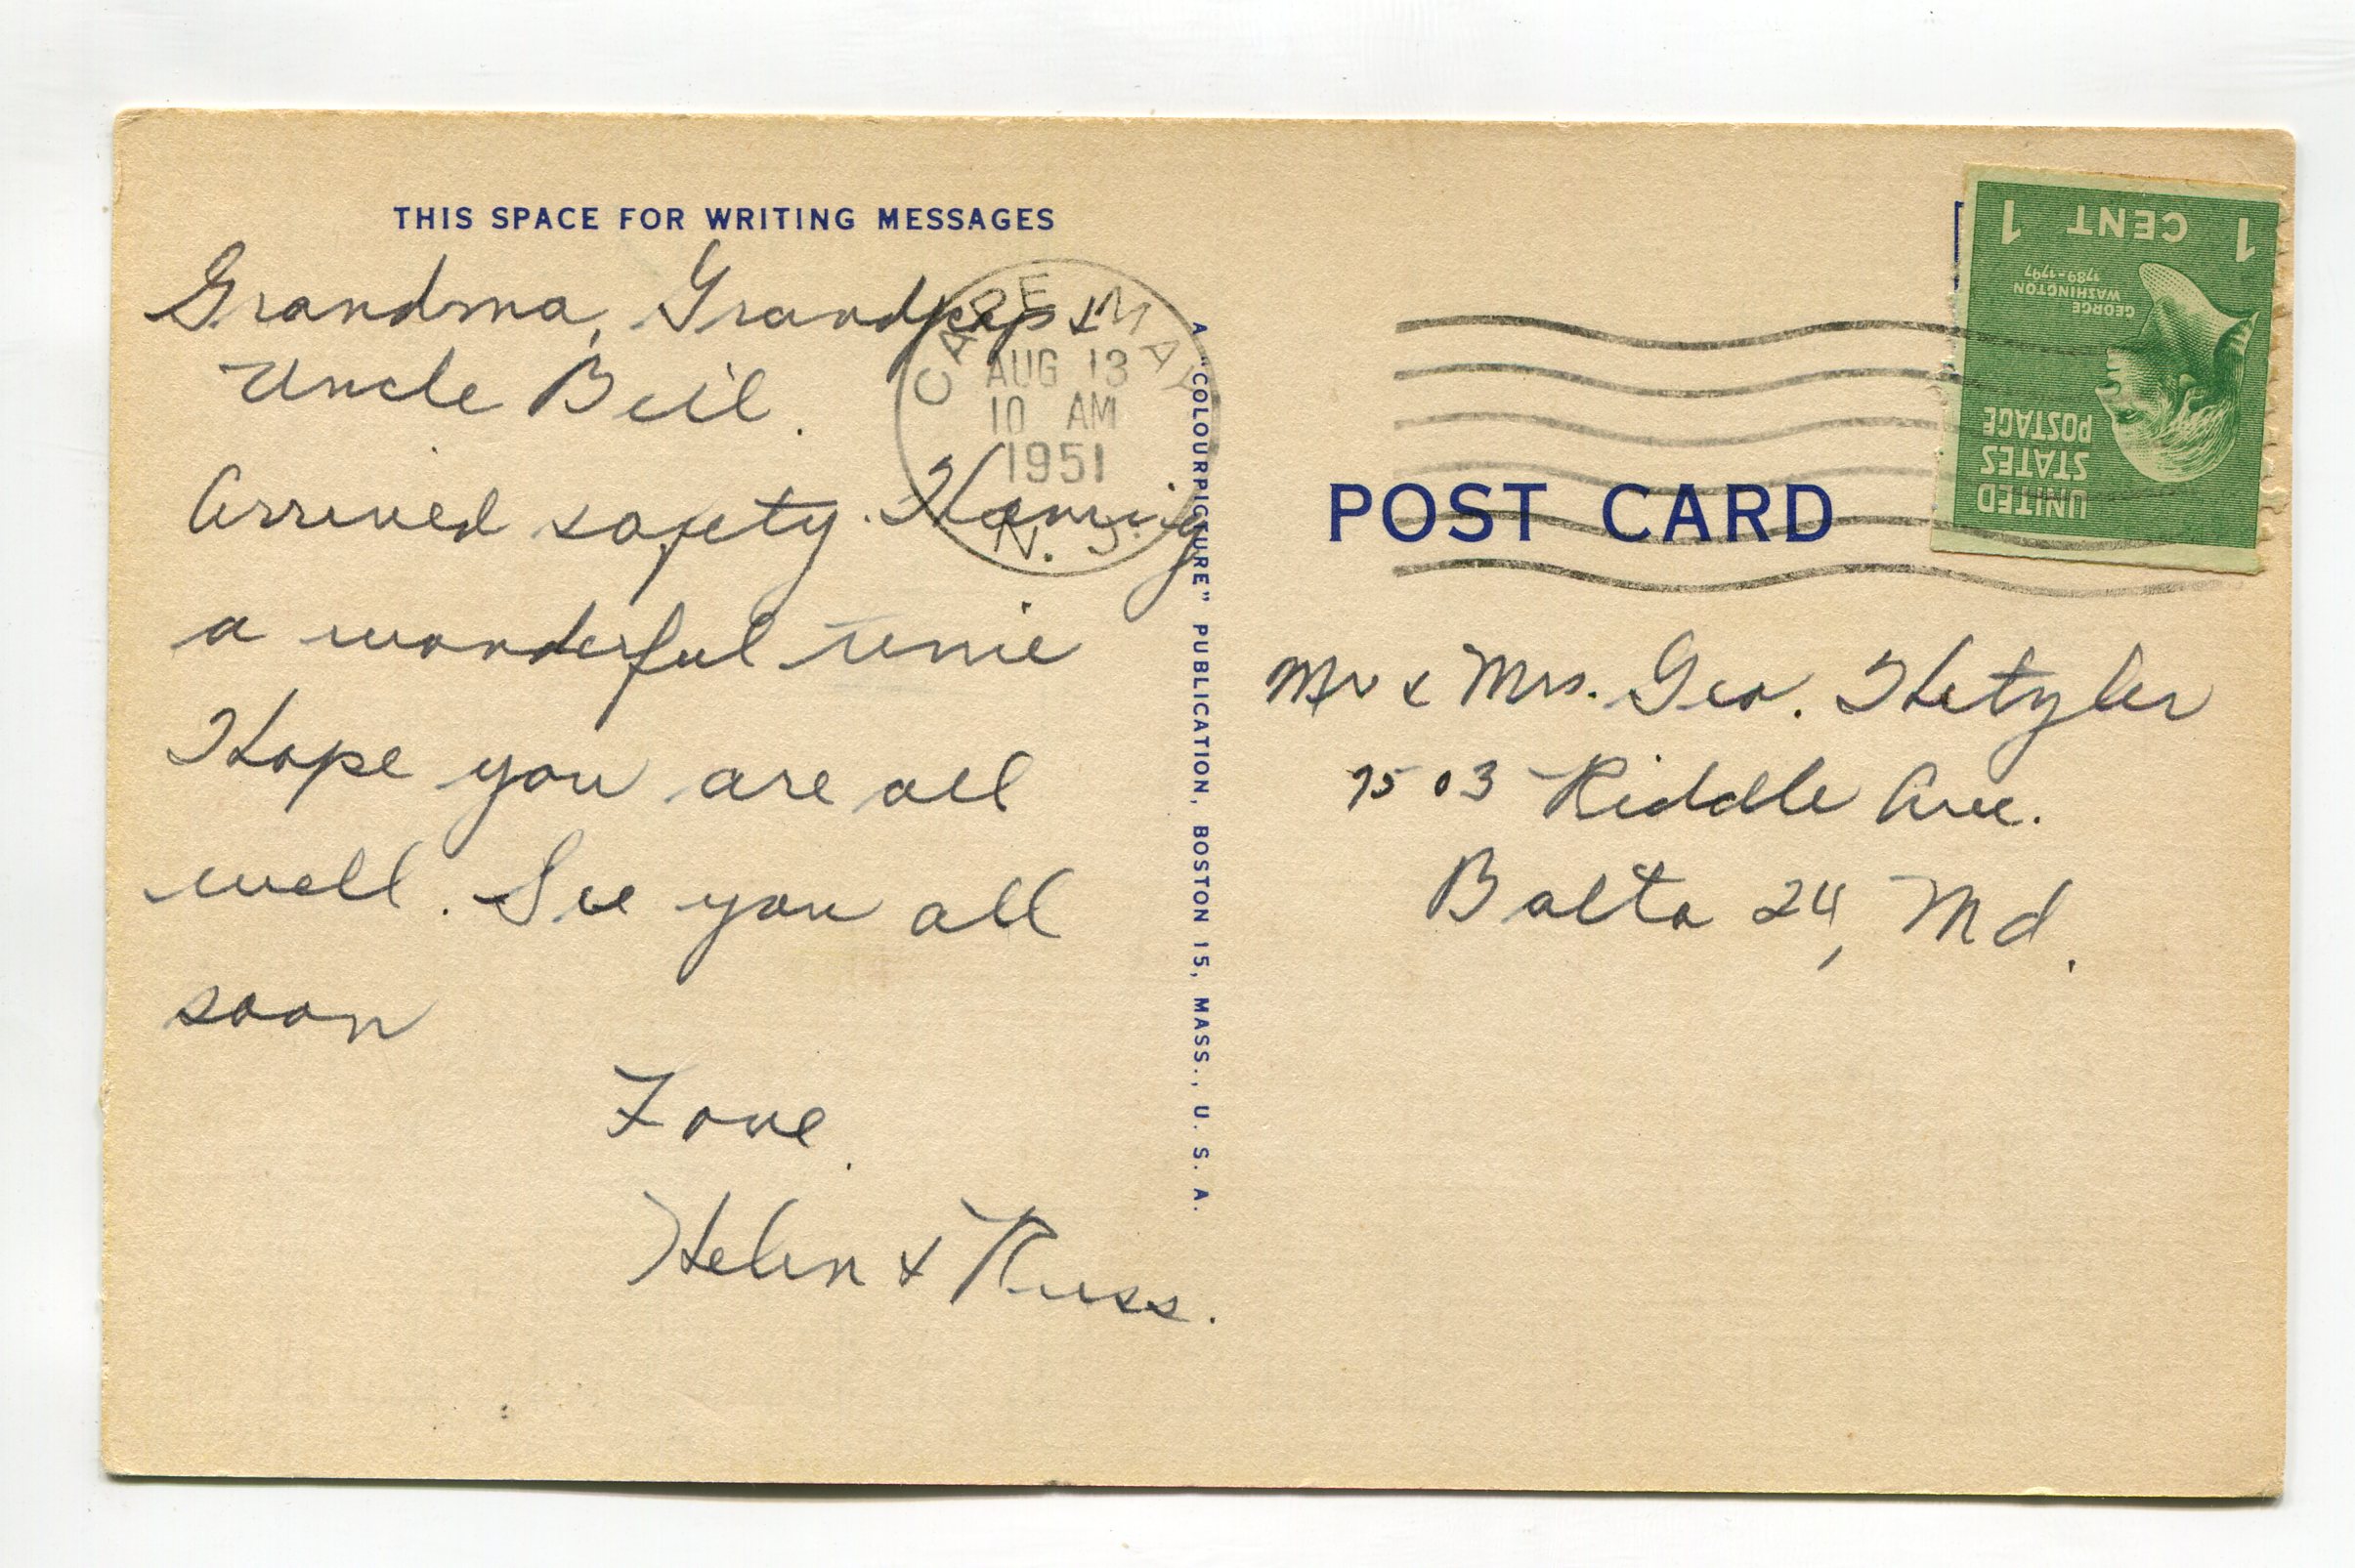 THIS SPACE FOR WRITING MESSAGES
Grandma, Grandpop &
Uncle Beil.
Arrived safety. Having
a wonderful time
Hope you are all
well. See you all
soon
Love,
Helen & Russ.
CAPE MAY
AUG 13
10 AM
1951
N. J.
A "COLOURPICTURE" PUBLICATION, BOSTON 15, MASS., U. S. A.
POST CARD
1 CENT 1
GEORGE
WASHINGTON
1789-1797
UNITED
STATES
POSTAGE
Mr & Mrs. Geo. Hetzler
7503 Riddle Ave.
Balto 24, Md.